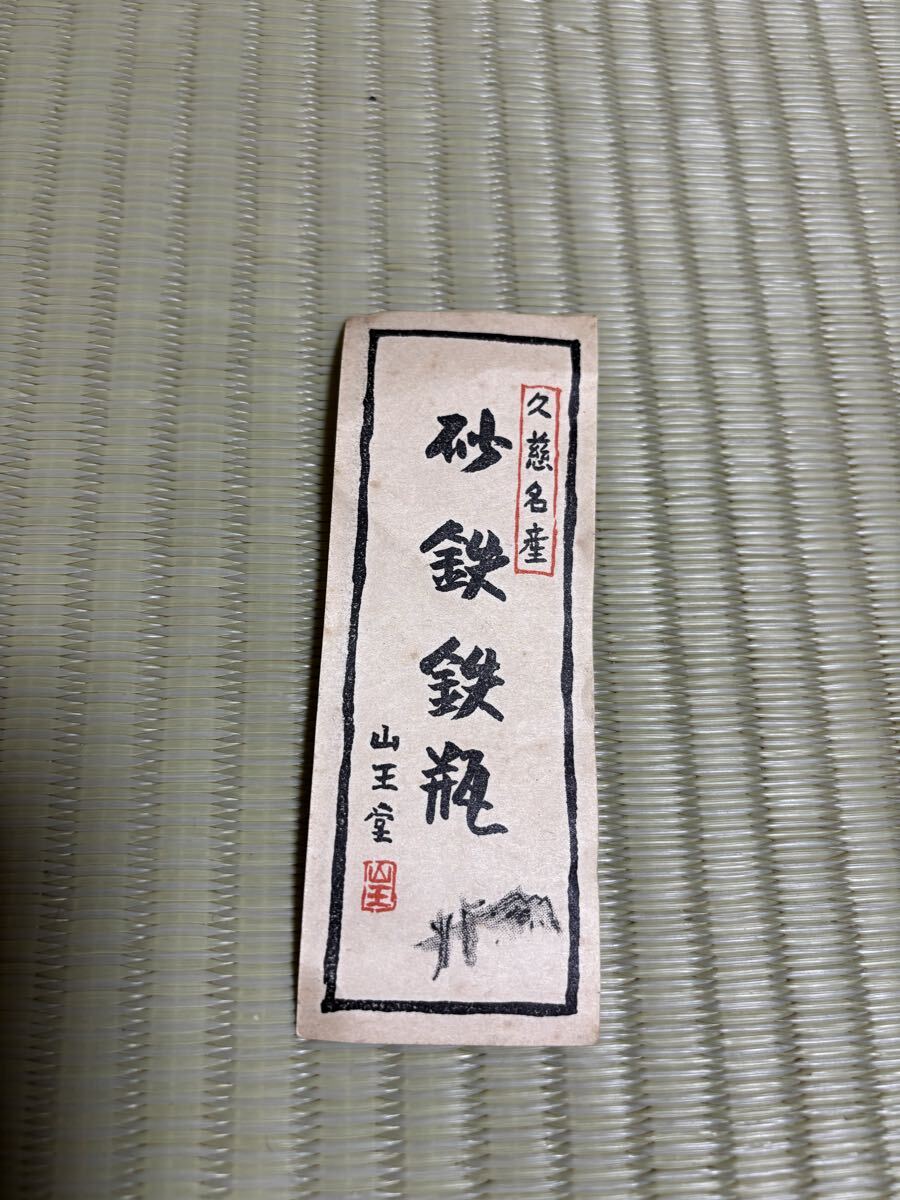 久慈名産
砂鉄鉄瓶
山王堂
山王